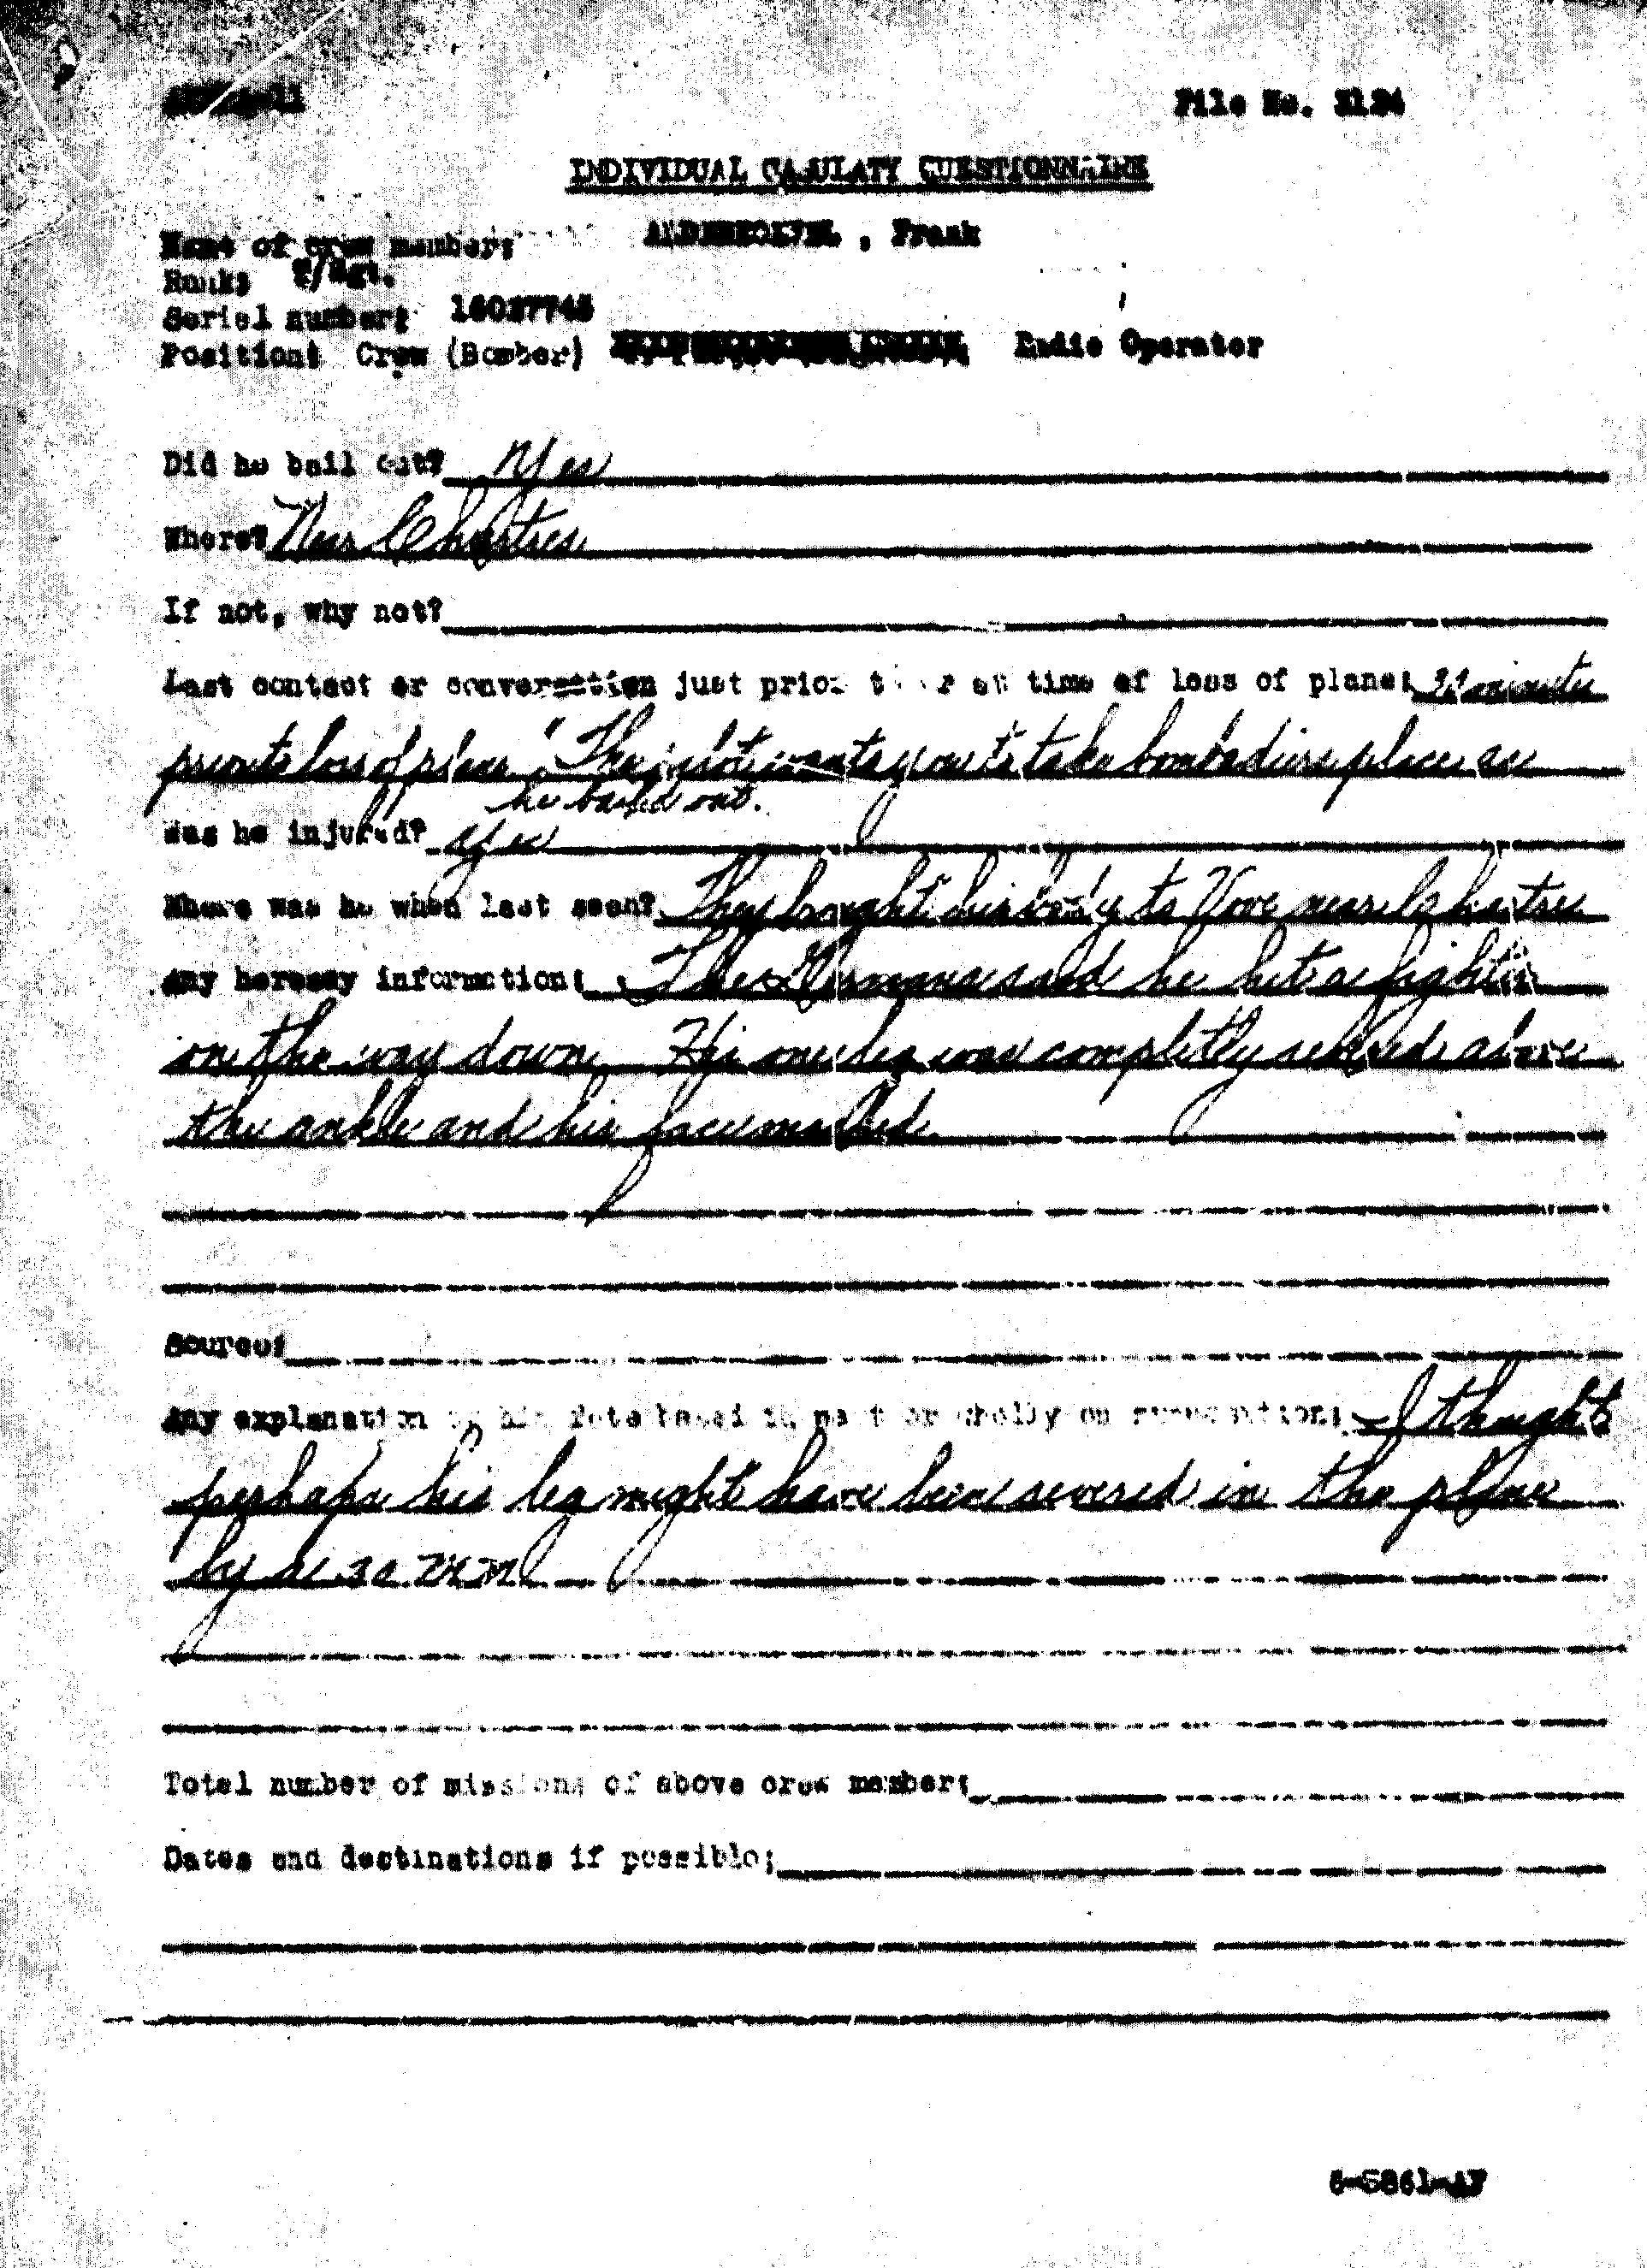 File No. 3124
INDIVIDUAL CASULATY QUESTIONNAIRE
Name of crew member: , Frank
Rank: T/Sgt.
Serial number: 16037745
Position: Crew (Bomber) Radio Operator
Did he bail out? Yes
Where? Near Chartres
If not, why not?
Last contact or conversation just prior to or at time of loss of plane: minutes
prior to loss of plane. "The pilot wants you to take bombadiers place as
he bailed out.
Was he injured? Yes
Where was he when last seen? They brought his body to Vove near Chartres
Any heresay information: The Germans said he hit a fighter
on the way down. His one leg was completly severed above
the ankle and his face mashed.
Source:
Any explanation of his fate based in part or wholly on supposition: I thought
perhaps his leg might have been severed in the plane
by a 30 MM
Total number of missions of above crew member:
Dates and destinations if possible:
6-5861-AF